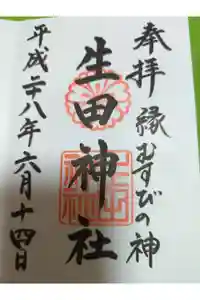 奉拝 縁むすびの神
生田神社
平成二十八年六月十四日